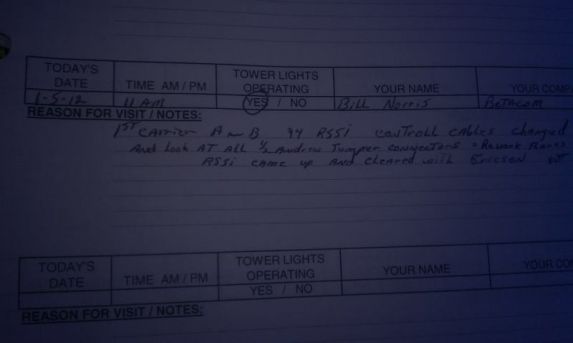 TODAY'S DATE TIME AM / PM TOWER LIGHTS OPERATING YOUR NAME YOUR COMP
1-5-12 11 AM YES / NO Bill Norris Betacom
REASON FOR VISIT / NOTES:
1ST Carrier A B RSSI controll cables changed
And Look AT All 1/2 Andrew Jumper connectors
RSSi came up and cleared with Ericson
TODAY'S DATE TIME AM / PM TOWER LIGHTS OPERATING YOUR NAME YOUR CO
YES / NO
REASON FOR VISIT / NOTES: